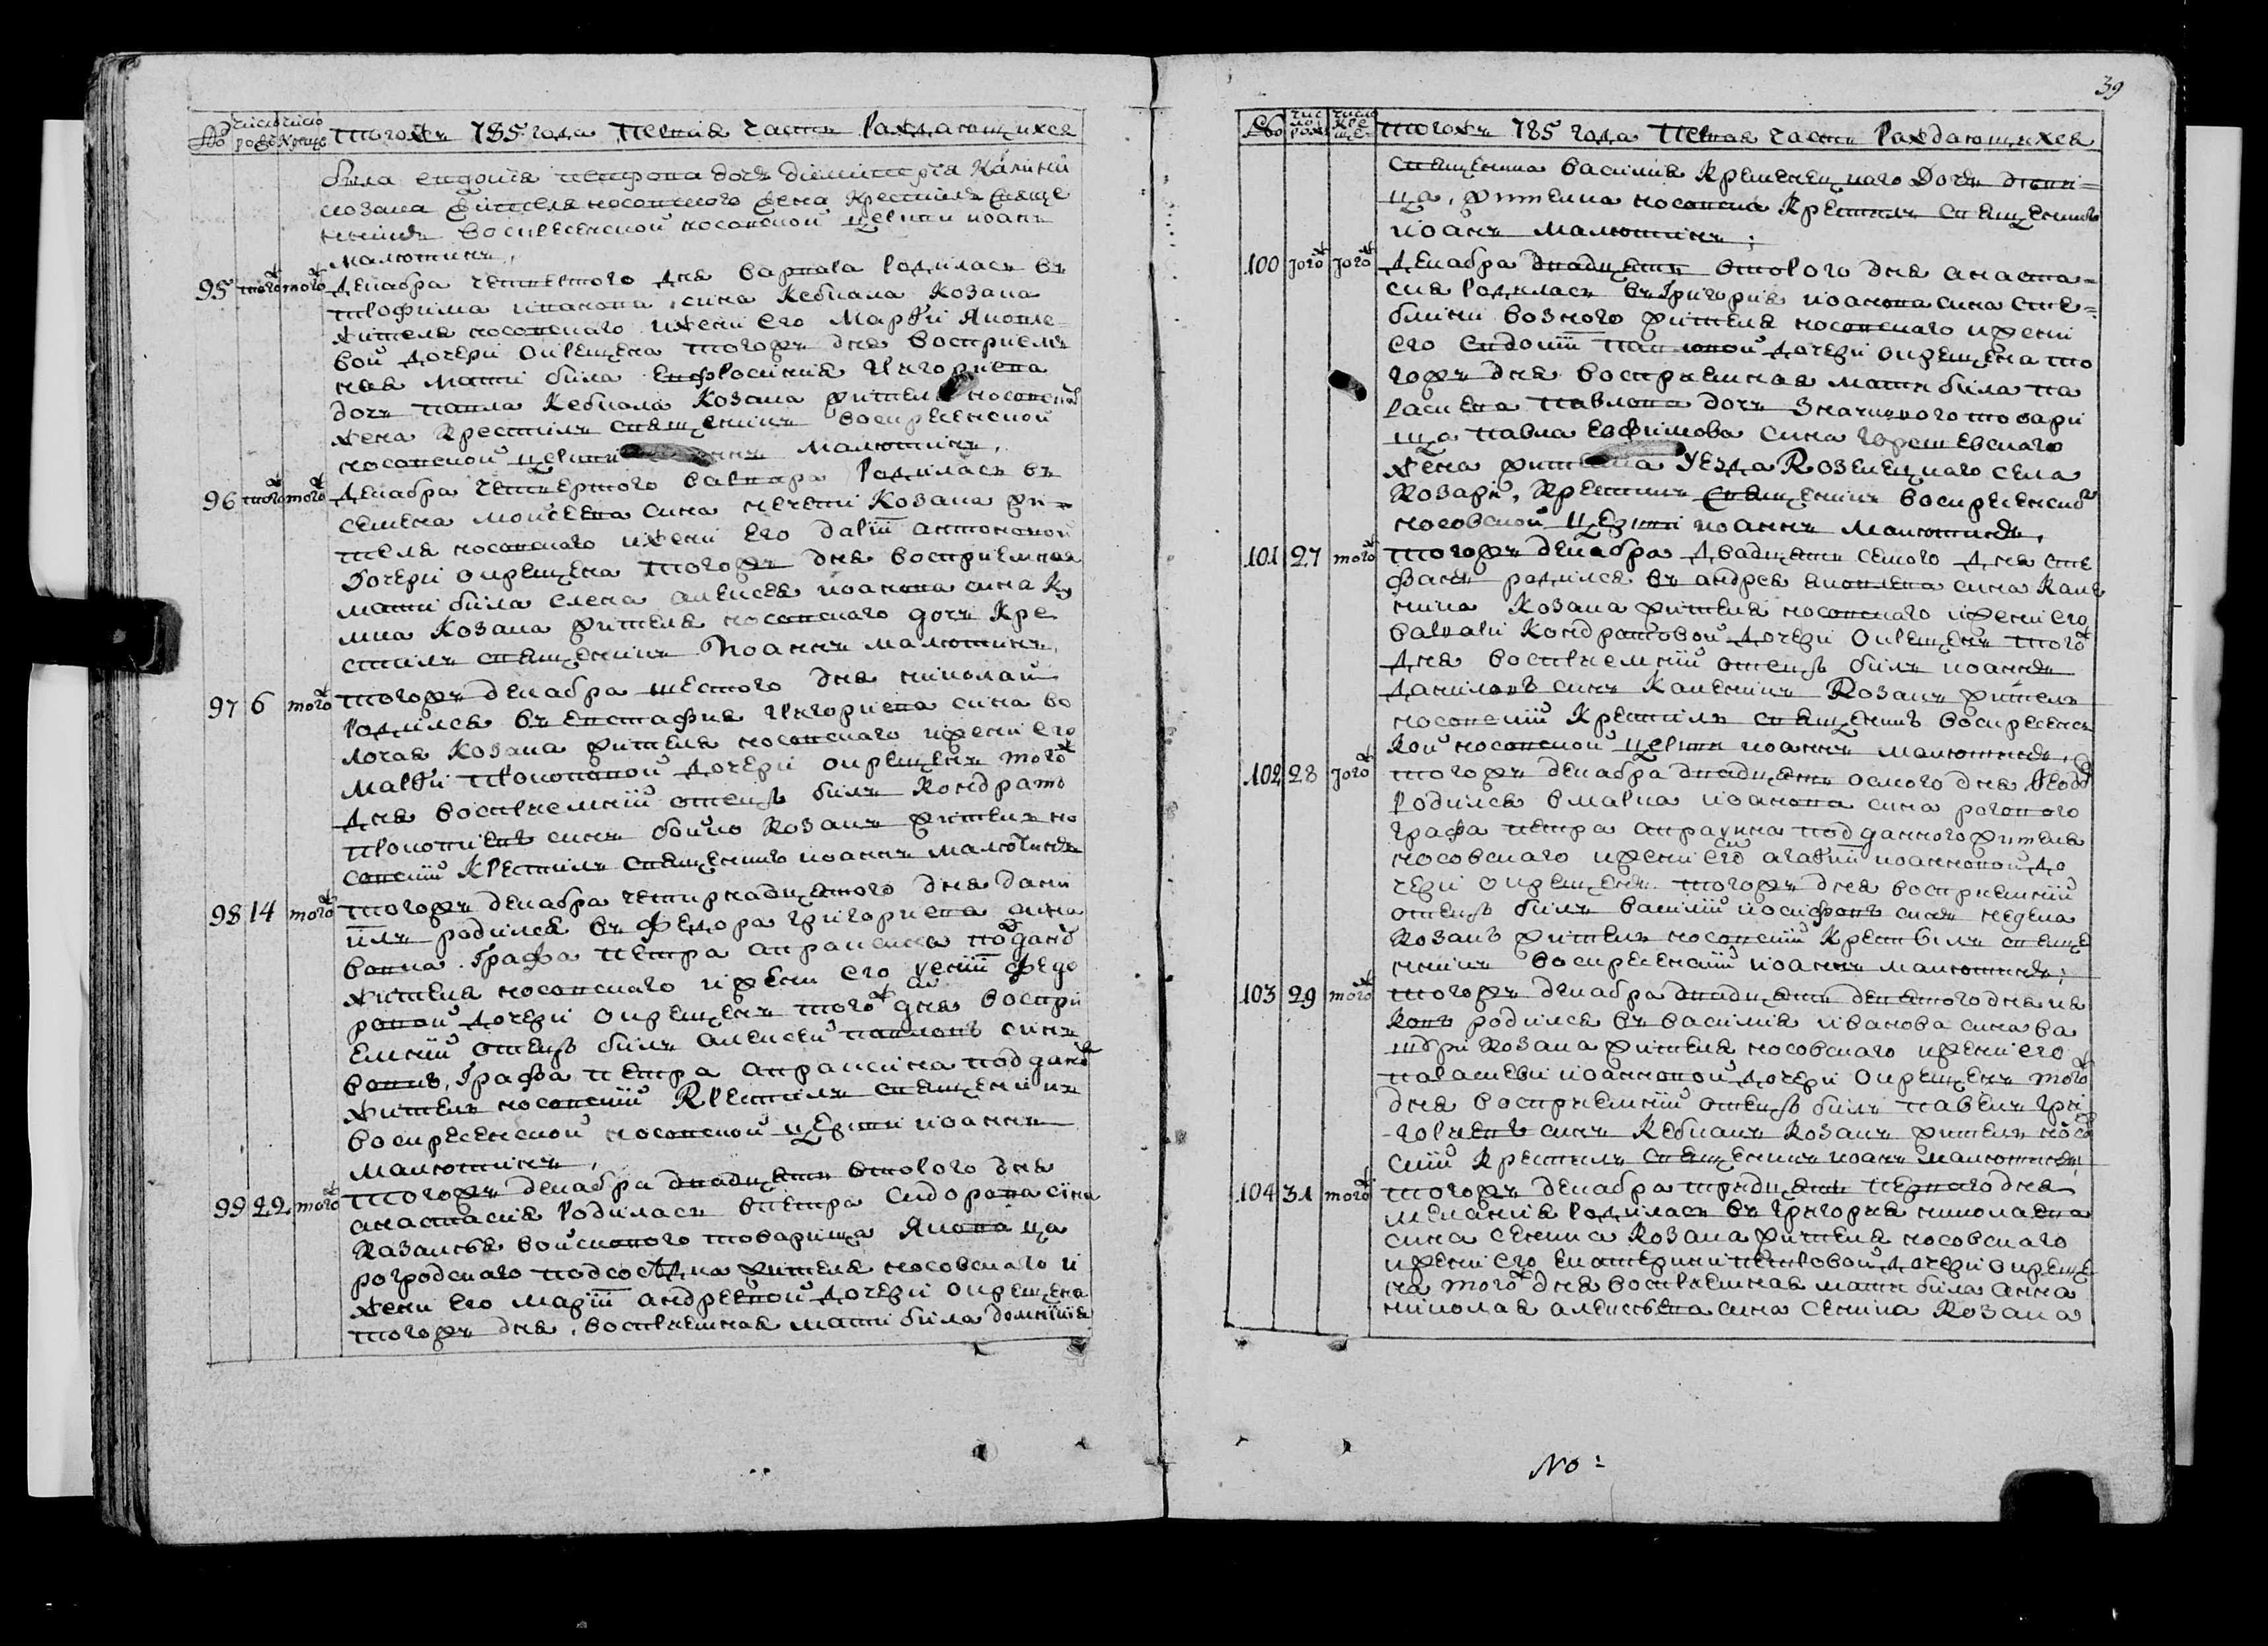 № число родв число крещ тогожъ 785 года первая часть раждающихся
била евдокія петрова дочъ димитрія Калинки
козака жителя носовского жена крестилъ свяще
нникъ воскресенской носовской церкви иоанъ
малютинъ,
95 того ж того ж декабра четвертого дня варвара родилась въ
трофима иванова сина Кебкала козака
жителя носовскаго ижени его Марѳи Яковле
вой дочери окрещена тогожъ дня восприем
ная мати била евфросиния григориева
дочъ павла Кебкала козака жителя носовской
жена крестилъ священникъ воскресенской
носовской церкви малютинъ,
96 того ж того ж декабра четвертого варвара родилась въ
семена моисеева сина козака жи
теля носовского ижени его даріи антоновой
дочери окрещена тогожъ дня восприемная
мати била елена алексея иоанова сина
козака жителя носовскаго дочъ кре
стилъ священникъ иоаннъ малютинъ,
97 6 того ж тогожъ декабра шестого дня николай
родился въ евстафия григориева сина во
лочая козака жителя носовскаго ижени его
марѳи прокоповой дочери окрещенъ того ж
дня восприемний отецъ билъ кондратъ
прокопиевъ синъ бойко козакъ жителъ но
совский крестилъ священникъ иоаннъ малютинъ
98 14 того ж тогожъ декабра четирнадцятого дня дани
илъ родился въ федора григориева сина
вовка графа петра апраксина поддано
жителя носовскаго ижени его ксеніи федо
ровой дочери окрещенъ того ж дня воспри
емний отецъ билъ алексей павловъ синъ
вовкъ, графа петра апраксина поддано
жителъ носовский крестилъ священникъ
воскресенской носовской церкви иоаннъ
малютинъ,
99 22 того ж тогожъ декабра двадцять второго дня
анастасия родилась впетра сидорова сина
войскового товарища Якова
подсоседка жителя носовскаго и
жени его маріи андреевой дочери окрещена
тогожъ дня, восприемная мати била домникия
39
№ число рожд число креще тогожъ 785 года первая часть раждающихся
священника василия Кременецкаго дочъ деви
ца, жителка носовска крестилъ священникъ
иоанъ малютинъ;
100 того ж того ж декабра двадцять второго дня анаста
сия родилась въ григория иоанова сина сте
блини возного жителя носовскаго ижени
его евдокіи павловой дочери окрещена то
гожъ дня восприемная мати била па
раскева павлова дочъ значкового товари
ща павла евфимова сина
жена уезда козелецкаго села
козари, крестилъ священникъ воскресенской
носовской церкви иоаннъ малютинъ,
101 27 того ж тогожъ декабра двадцять семого дня сте
фанъ родился въ андрея яковлева сина
козака жителя носовскаго ижени его
варвари кондратовой дочери окрещенъ того ж
дня восприемний отецъ билъ иоаннъ
даниловъ синъ козакъ жителъ
носовский крестилъ священникъ воскресенс
кой носовской церкви иоаннъ малютинъ,
102 28 того ж тогожъ декабра двадцять осмого дня ѳеодо
родился вмарка иоанова сина рогового
графа петра апраксина подданного жителя
носовскаго ижени его агафіи иоанновой до
чери окрещенъ тогожъ дня восприемний
отецъ билъ василий иосифовъ синъ
козакъ жителъ носовский крестилъ свяще
нникъ воскресенский иоаннъ малютинъ;
103 29 того ж тогожъ декабра двадцять девятого дня ия
ковъ родился въ василия иванова сина
козака жителя носовскаго ижени его
параскеви иоанновой дочери окрещенъ того ж
дня восприемний отецъ билъ павелъ гри
гориевъ синъ кебкалъ козакъ жителъ носо
ский крестилъ священникъ иоанъ малютинъ,
104 31 того ж тогожъ декабра тридцять первого дня
мелания родилась въ григория николаева
сина сенка козака жителя носовскаго
ижени его екатерини петровой дочери окреще
на того ж дня восприемная мати била анна
николая алексеева сина сенка козака
No: